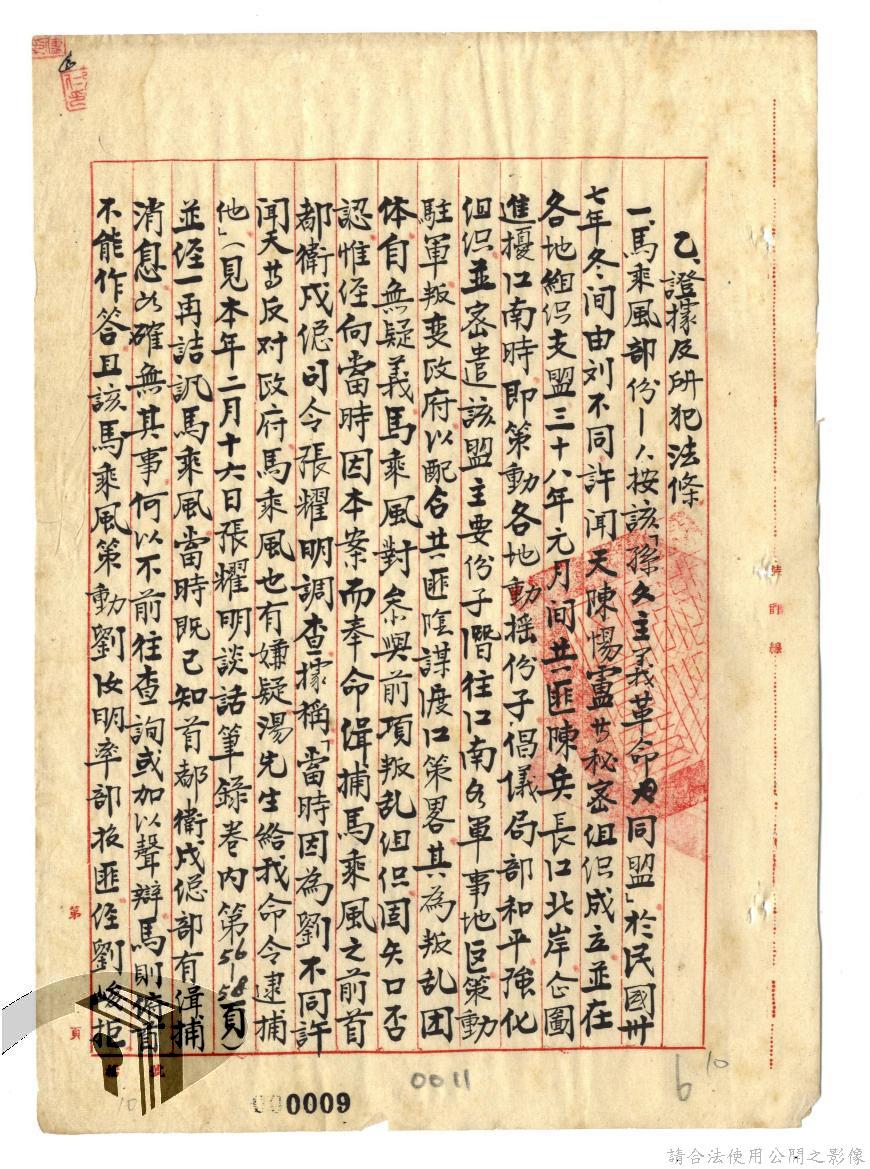 乙、證據及所犯法條
一、馬乘風部份—1、按該「孫文主義革命同盟」於民國卅
七年冬間由刘不同許闻天陳惕廬䓁秘密组织成立並在
各地組织支盟三十八年元月間共匪陳兵長江北岸企圖
進擾江南時即策動各地動摇份子倡儀局部和平強化
组织並密遣该盟主要份子潛往江南各軍事地区策動
駐軍叛变政府以配合共匪陰謀渡江策畧其為叛乱团
体自無疑義馬乘風對叅與前項叛乱组织固矢口否
認惟经向當時因本案而奉命缉捕馬乘風之前首
都衛戍总司令張耀明調查據稱「當時因為劉不同許
闻天䓁反对政府馬乘風也有嫌疑湯先生給我命令逮捕
他」(見本年二月十六日張耀明談話筆錄卷内第56-58頁)
並经一再詰訊馬乘風當時既已知首都衛戍总部有缉捕
消息如確無其事何以不前往查詢或加以聲辯馬則俯首
不能作答且該馬乘風策動劉汝明率部投匪经劉峻拒
裝訂線
第
頁
0011
000009
6
10
10
請合法使用公開之影像